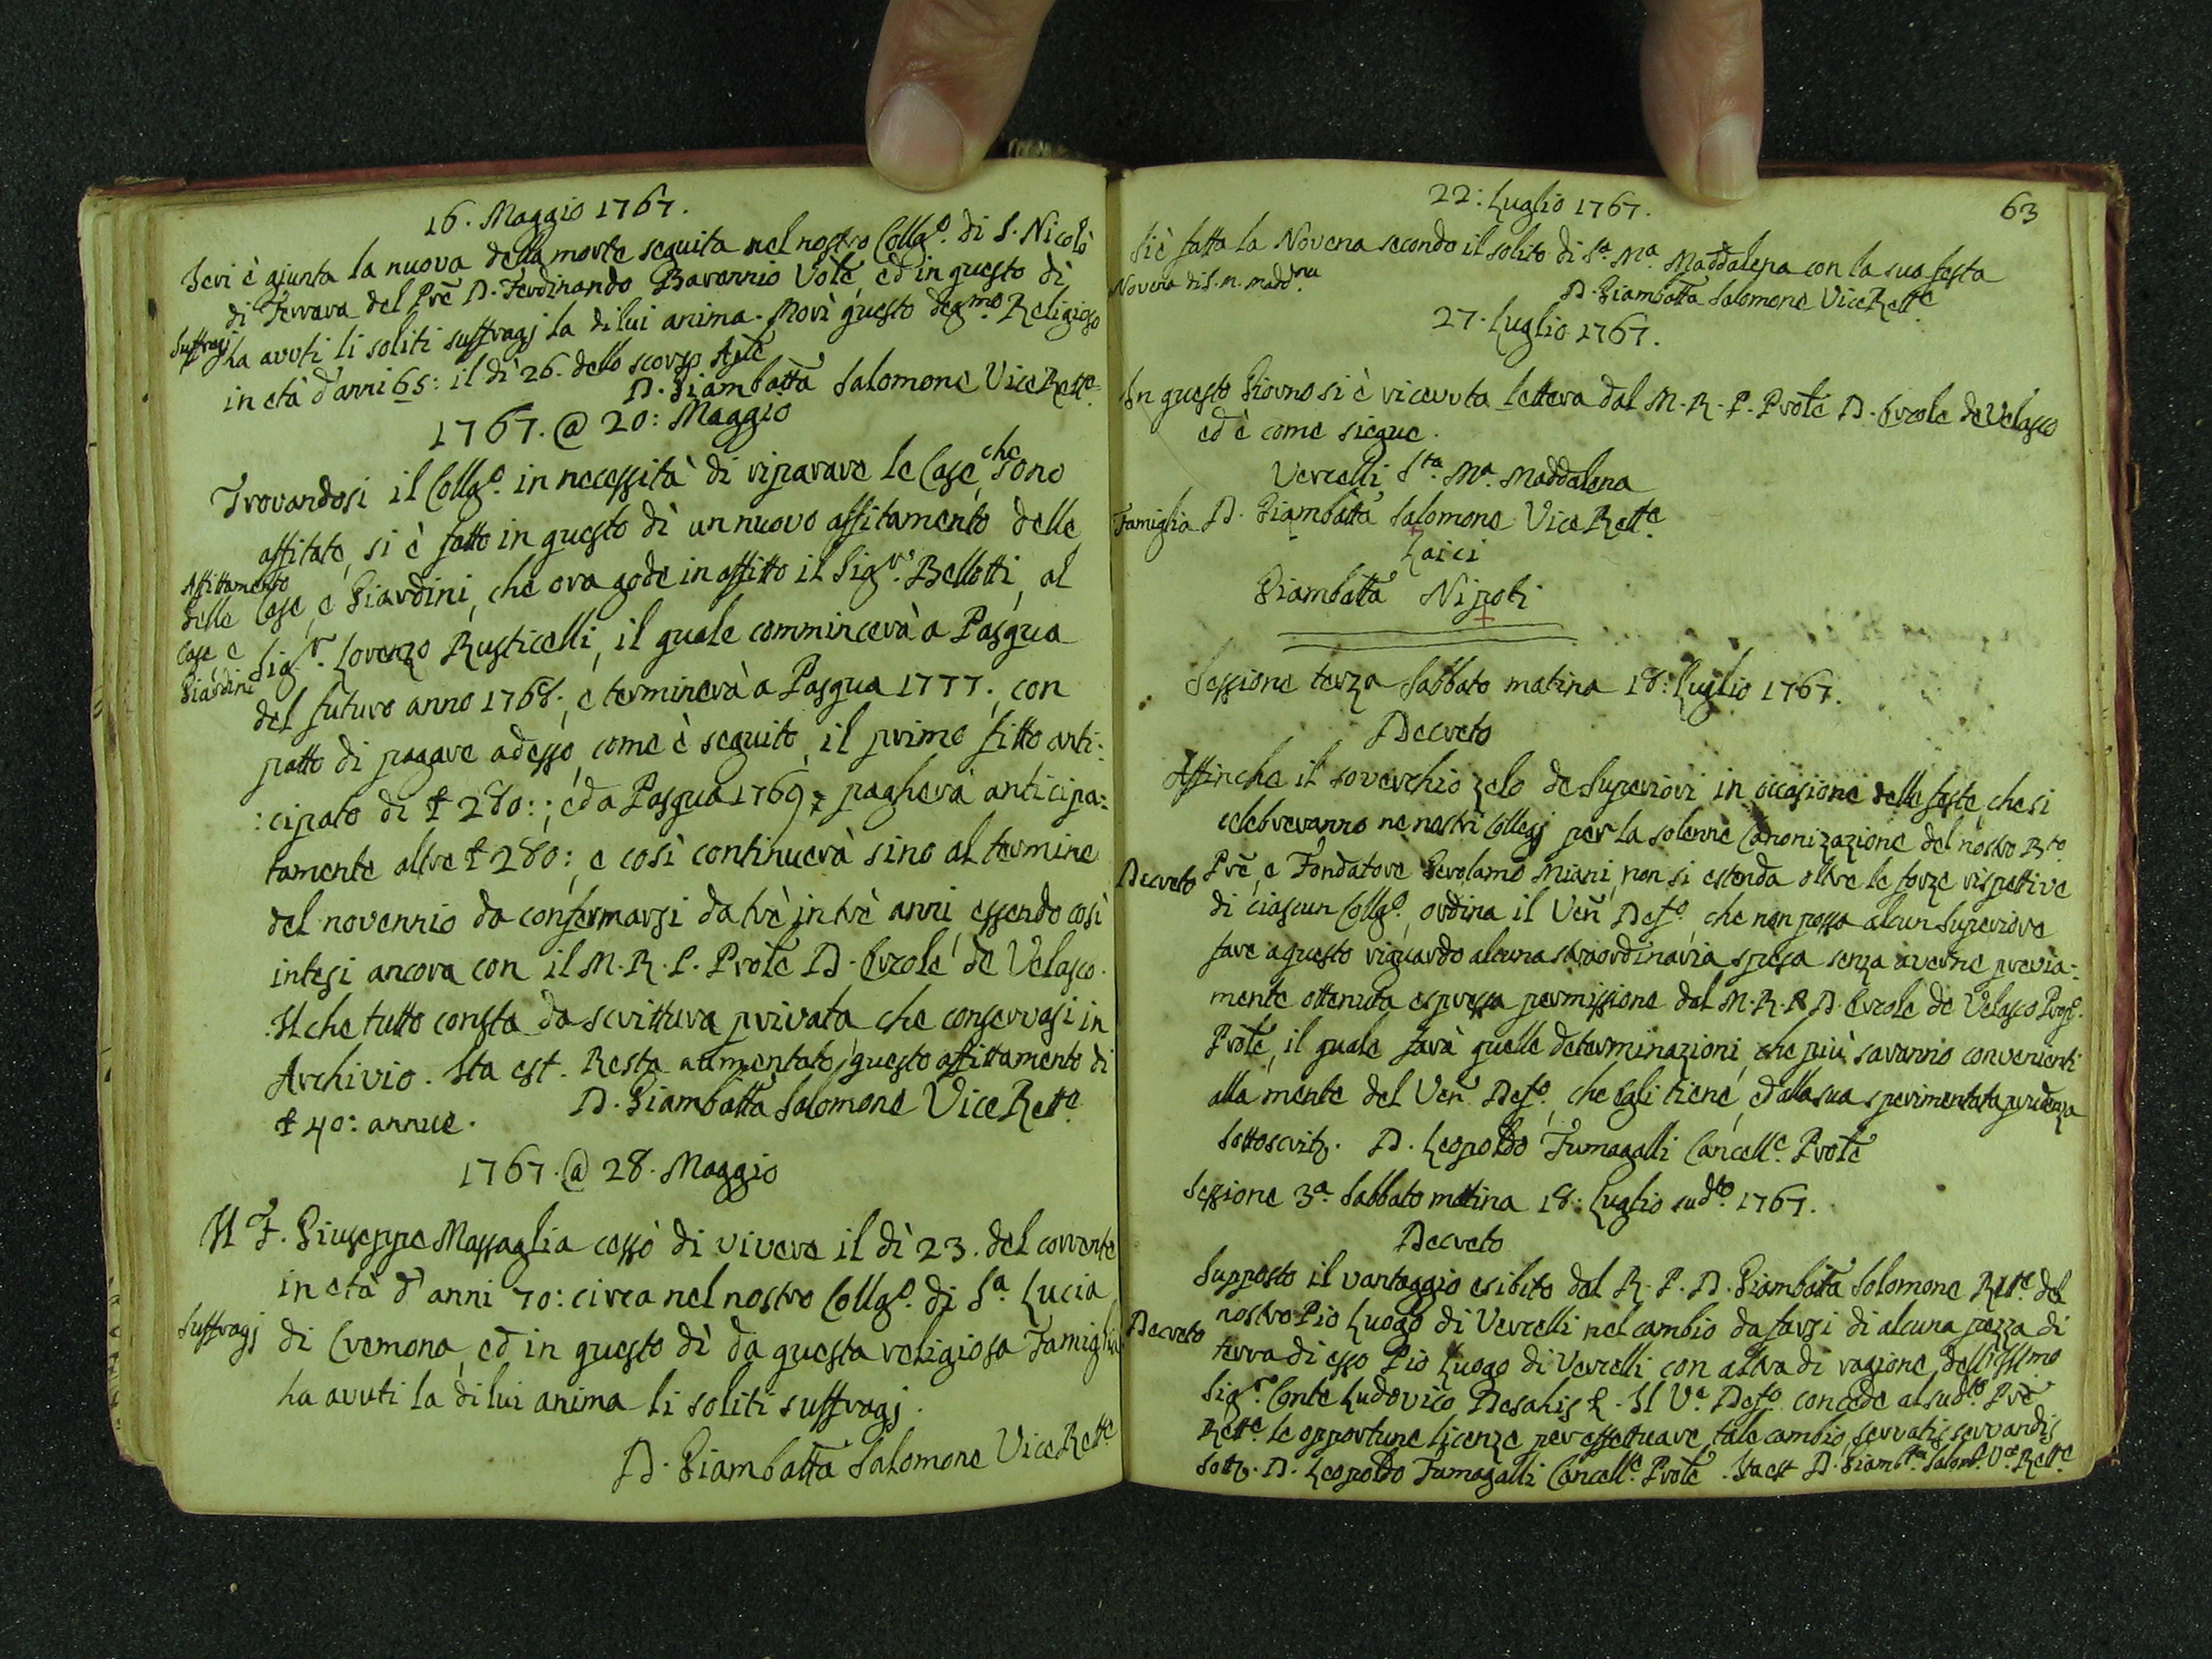 16. Maggio 1767.
Ieri è giunta la nuova della morte seguita nel nostro Collg.o di S. Nicolò
di Ferrara del Prē D. Ferdinando Barennio Votē, ed in questo dì
Suffragj
ha avuti li soliti suffragj la di lui anima. Morì questo degmo. Religioso
in età d'anni 65: il dì 26. dello scorso Aplē
D. Giambatta Salomone Vice Rette.
1767. @ 20: Maggio
Trovandosi il Collg.o in necessità di riparare le Case, che sono
affitate, si è fatto in questo dì un nuovo affitamento delle
Affittamento delle Case, e Giardini
Case, e Giardini, che ora gode in affitto il Sigr. Bellotti, al
Sigr. Lorenzo Rusticelli, il quale commincerà a Pasqua
del futuro anno 1768., e terminerà a Pasqua 1777., con
patto di pagare adesso, come è seguito, il primo fitto anti:
:cipato di ₤ 280:; ed a Pasqua 1769 pagherà anticipa:
tamente altre ₤ 280: e così continuerà sino al termine
del novennio da confermarsi da trè in trè anni, essendo così
intesi ancora con il M. R. P. Protē D. Ercole de Velasco.
Il che tutto consta da scrittura privata che conservasi in
Archivio. Ita est. Resta aumentato questo affittamento di
₤ 40: annue. D. Giambatta Salomone Vice Rette.
1767. @ 28. Maggio
Il F. Giuseppe Massaglia cessò di vivere il dì 23. del corrente
in età d'anni 70: circa nel nostro Collg.o di Sa. Lucia
Suffragj
di Cremona, ed in questo dì da questa religiosa Famiglia
ha avuti la di lui anima li soliti suffragj.
D. Giambatta Salomone Vice Rette
63
22: Luglio 1767.
Si è fatta la Novena secondo il solito di Sa. Ma. Maddalena con la sua festa
Novena di S. M. Maddna.
D. Giambatta Salomone Vice Rette.
27. Luglio 1767.
In questo Giorno si è ricevuta lettera dal M. R. P. Protē D. Ercole de Velasco
ed è come siegue.
Vercelli Sta. Ma. Maddalena
Famiglia
D. Giambatta Salomone Vice Rette.
Laici
Giambatta Nipoti
Sessione terza Sabbato matina 18: Luglio 1767.
Decreto
Affinche il soverchio zelo de Superiori in occasione delle feste, che si
celebreranno ne nostri Collegj per la solenne Canonizazione del nostro Bto.
Decreto
Prē, e Fondatore Gerolamo Miani, non si estenda oltre le forze rispettive
di ciascun Collg.o, ordina il Veñ Defo., che non possa alcun Superiore
fare a questo riguardo alcuna straordinaria spesa senza averne previa:
mente ottenuta espressa permissione dal M. R. P. D. Ercole de Velasco Prop.
Protē, il quale farà quelle determinazioni, che più saranno convenienti
alla mente del Veñ Defo., che egli tiene, ed alla sua sperimentata prudenza
Sottoscritt. D. Leopoldo Fumagalli Cancelle. Protē
Sessione 3a. Sabbato matina 18: Luglio sudto. 1767.
Decreto
Supposto il vantaggio esibito dal R. P. D. Giambatta Salomone Rette. del
Decreto
nostro Pio Luogo di Vercelli nel cambio da farsi di alcuna pezza di
terra di esso Pio Luogo di Vercelli con altra di ragione dell'Illmo
Sigr. Conte Ludovico Il Ve. Defo. concede al sudto. Prē
Rette. le opportune licenze per effettuare tale cambio, servatis servandis
Sott. D. Leopoldo Fumagalli Cancelle. Protē. Ita est D. Giambtta. Salom. Ve. Rette